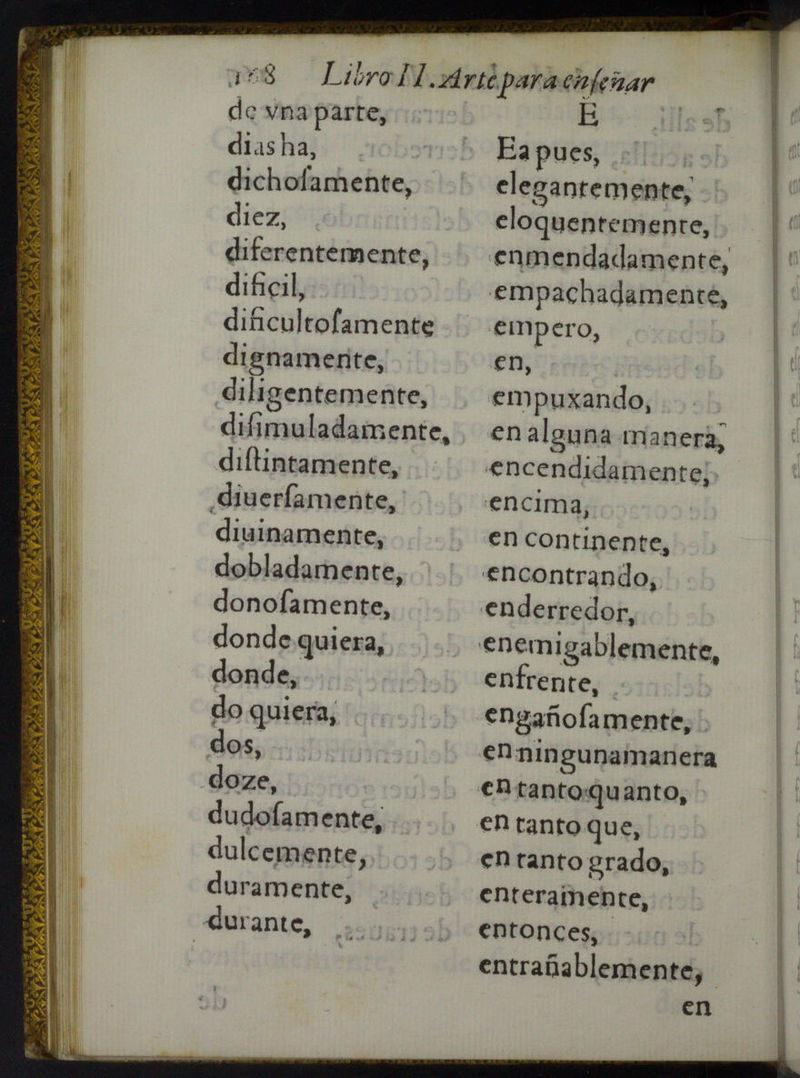 Libro II. Arte para enſeñar
de vna parte,
dias ha,
dichoſamente,
diez,
diferentemente,
dificil,
dificultoſamente
dignamente,
diligentemente,
diſimuladamente,
diſtintamente,
diuerſamente,
diuinamente,
dobladamente,
donoſamente,
donde quiera,
donde,
do quiera,
dos,
doze,
dudoſamente,
dulcemente,
duramente,
durante,
E
Ea pues,
elegantemente,
eloquentemente,
enmendadamente,
empachadamente,
empero,
en,
empuxando,
en alguna manera,
encendidamente,
encima,
en continente,
encontrando,
enderredor,
enemigablemente,
enfrente,
engañoſamente,
en ninguna manera
en tanto quanto,
en tanto que,
en tanto grado,
enteramente,
entonces,
entrañablemente,
en